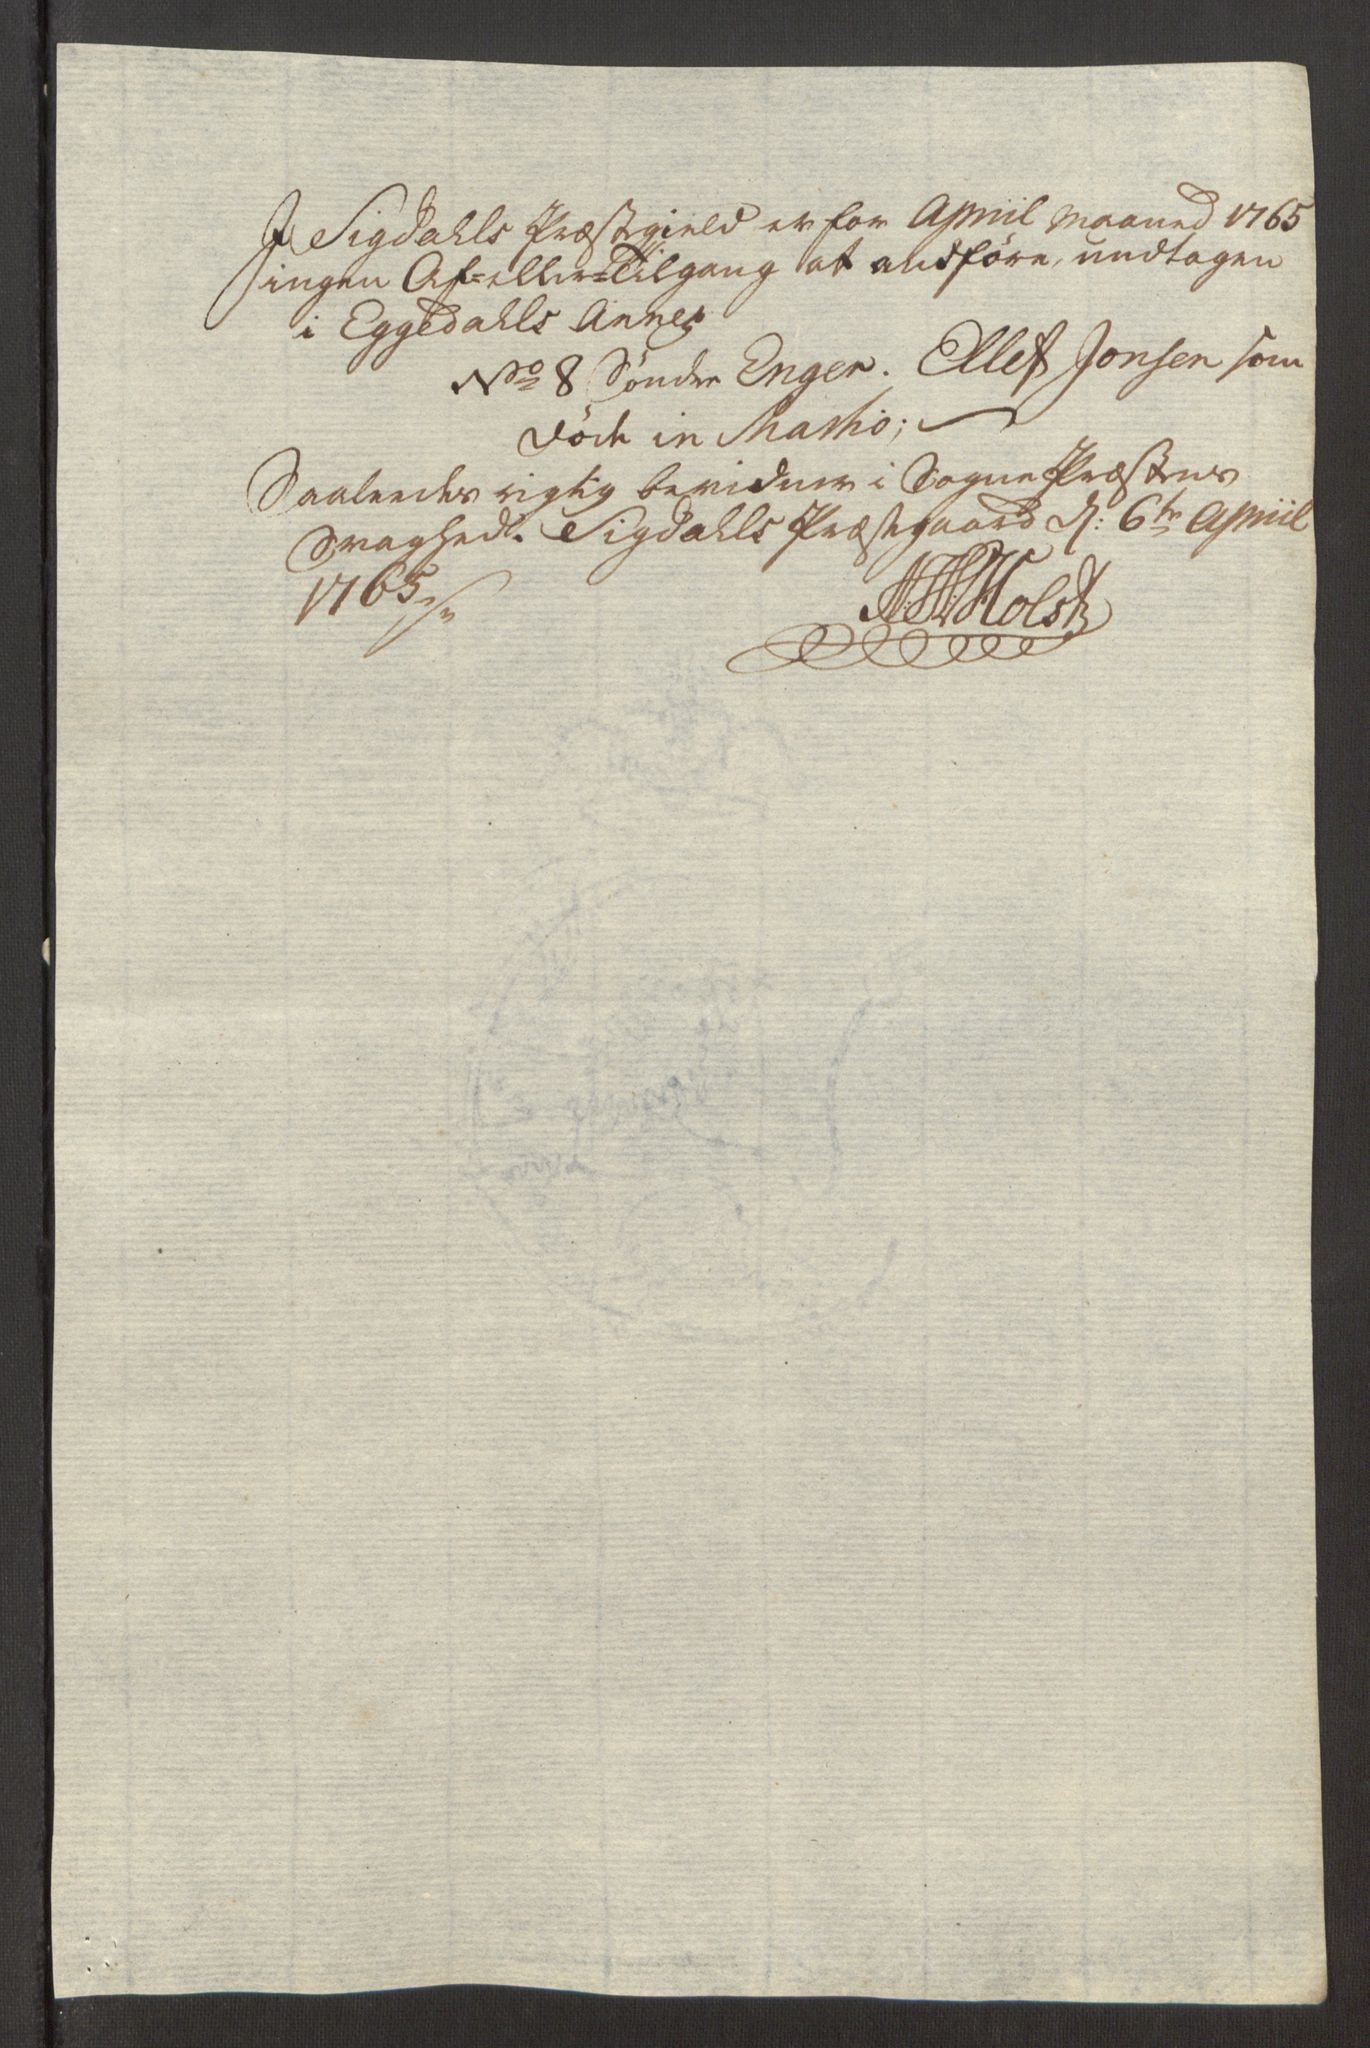 I Sigdahls Præstegield er for Apriil Maaned 1765
ingen Af- eller Tilgang at andföre, undtagen
i Eggedahls Annex
No 8 Söndre Enger. Ellef Jonsen som
döde in Martio;
Saaledes rigtig bevidner i Sogne Præstens
Svaghed. Sigdahls Præstegaard d: 6te Apriil
1765
Holst